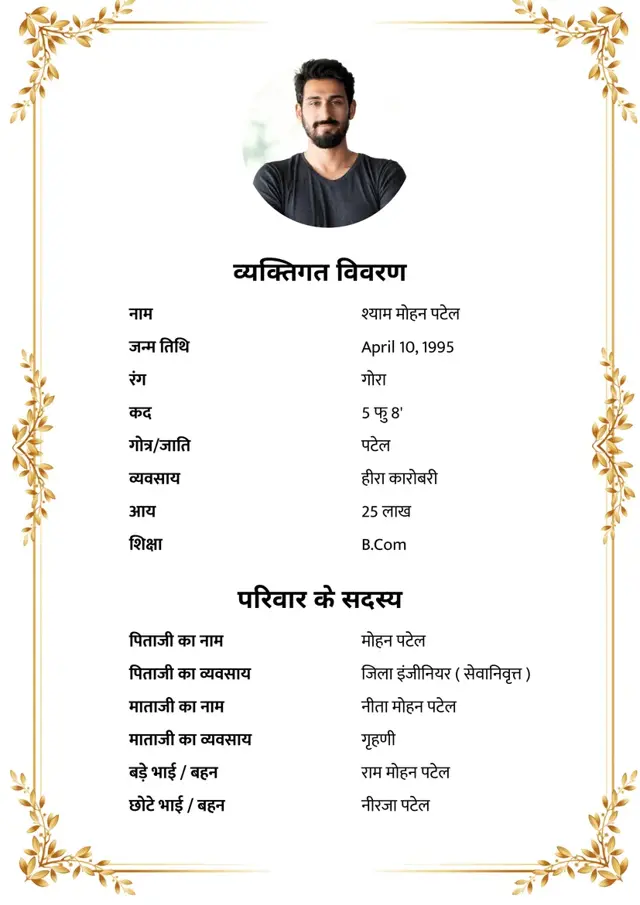 व्यक्तिगत विवरण
नाम श्याम मोहन पटेल
जन्म तिथि April 10, 1995
रंग गोरा
कद 5 फु 8'
गोत्र/जाति पटेल
व्यवसाय हीरा कारोबरी
आय 25 लाख
शिक्षा B.Com
परिवार के सदस्य
पिताजी का नाम मोहन पटेल
पिताजी का व्यवसाय जिला इंजीनियर ( सेवानिवृत्त )
माताजी का नाम नीता मोहन पटेल
माताजी का व्यवसाय गृहणी
बड़े भाई / बहन राम मोहन पटेल
छोटे भाई / बहन नीरजा पटेल